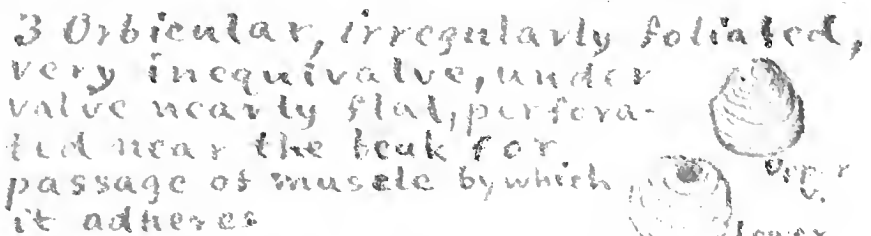 3 Orbicular, irregularly foliated,
very inequivalve, under
valve nearly flat, perfora-
ted near the beak for
passage of muscle by which
it adheres
Upper
v.
Lower